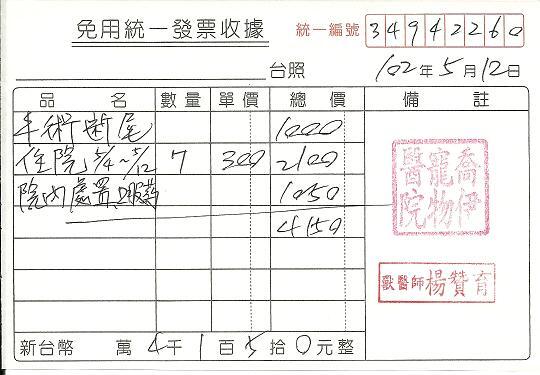 免用統一發票收據
統一編號 34942260
台照 102年5月12日
品名 數量 單價 總價 備註
手術断尾 1000
住院 5/4~5/12 7 300 2100
院內處置、口服藥 1050
4150
喬伊
寵物
醫院
獸醫師 楊贊育
新台幣 萬 4千 1百 5拾 0元整